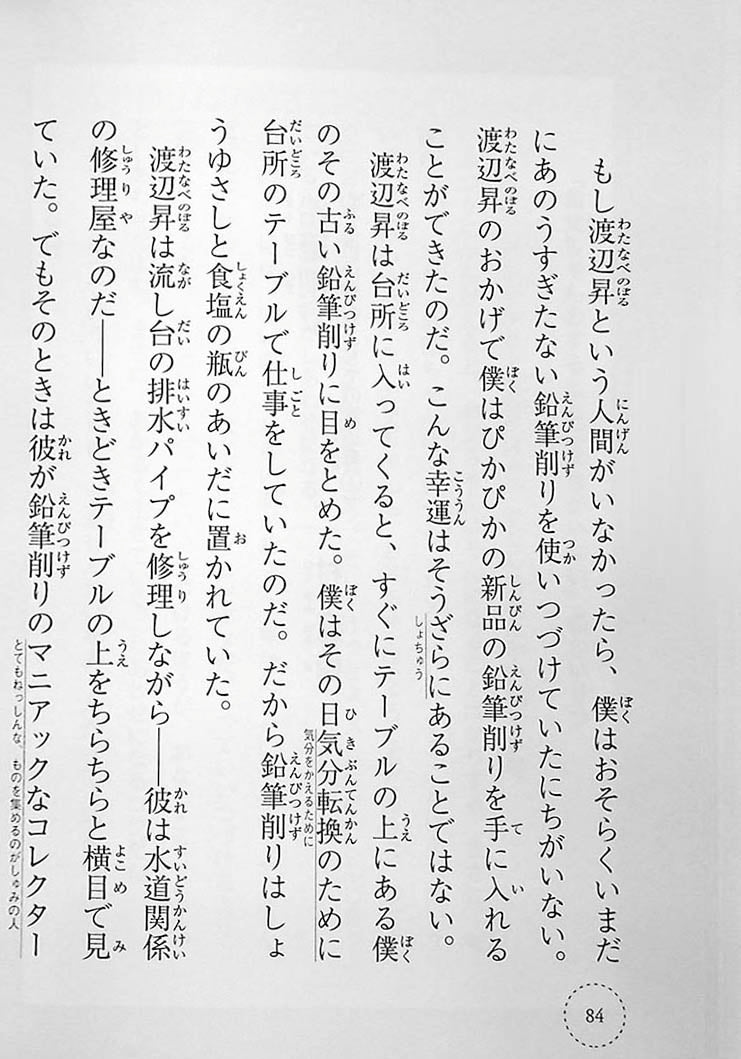 もし渡辺昇という人間がいなかったら、僕はおそらくいまだ
にあのうすぎたない鉛筆削りを使いつづけていたにちがいない。
渡辺昇のおかげで僕はぴかぴかの新品の鉛筆削りを手に入れる
ことができたのだ。こんな幸運はそうざらにあることではない。
しょちゅう
渡辺昇は台所に入ってくると、すぐにテーブルの上にある僕
のその古い鉛筆削りに目をとめた。僕はその日気分転換のために
気分をかえるために
台所のテーブルで仕事をしていたのだ。だから鉛筆削りはしょ
うゆさしと食塩の瓶のあいだに置かれていた。
渡辺昇は流し台の排水パイプを修理しながら――彼は水道関係
の修理屋なのだ――ときどきテーブルの上をちらちらと横目で見
ていた。でもそのときは彼が鉛筆削りのマニアックなコレクター
とてもねっしんな、ものを集めるのがしゅみの人
84